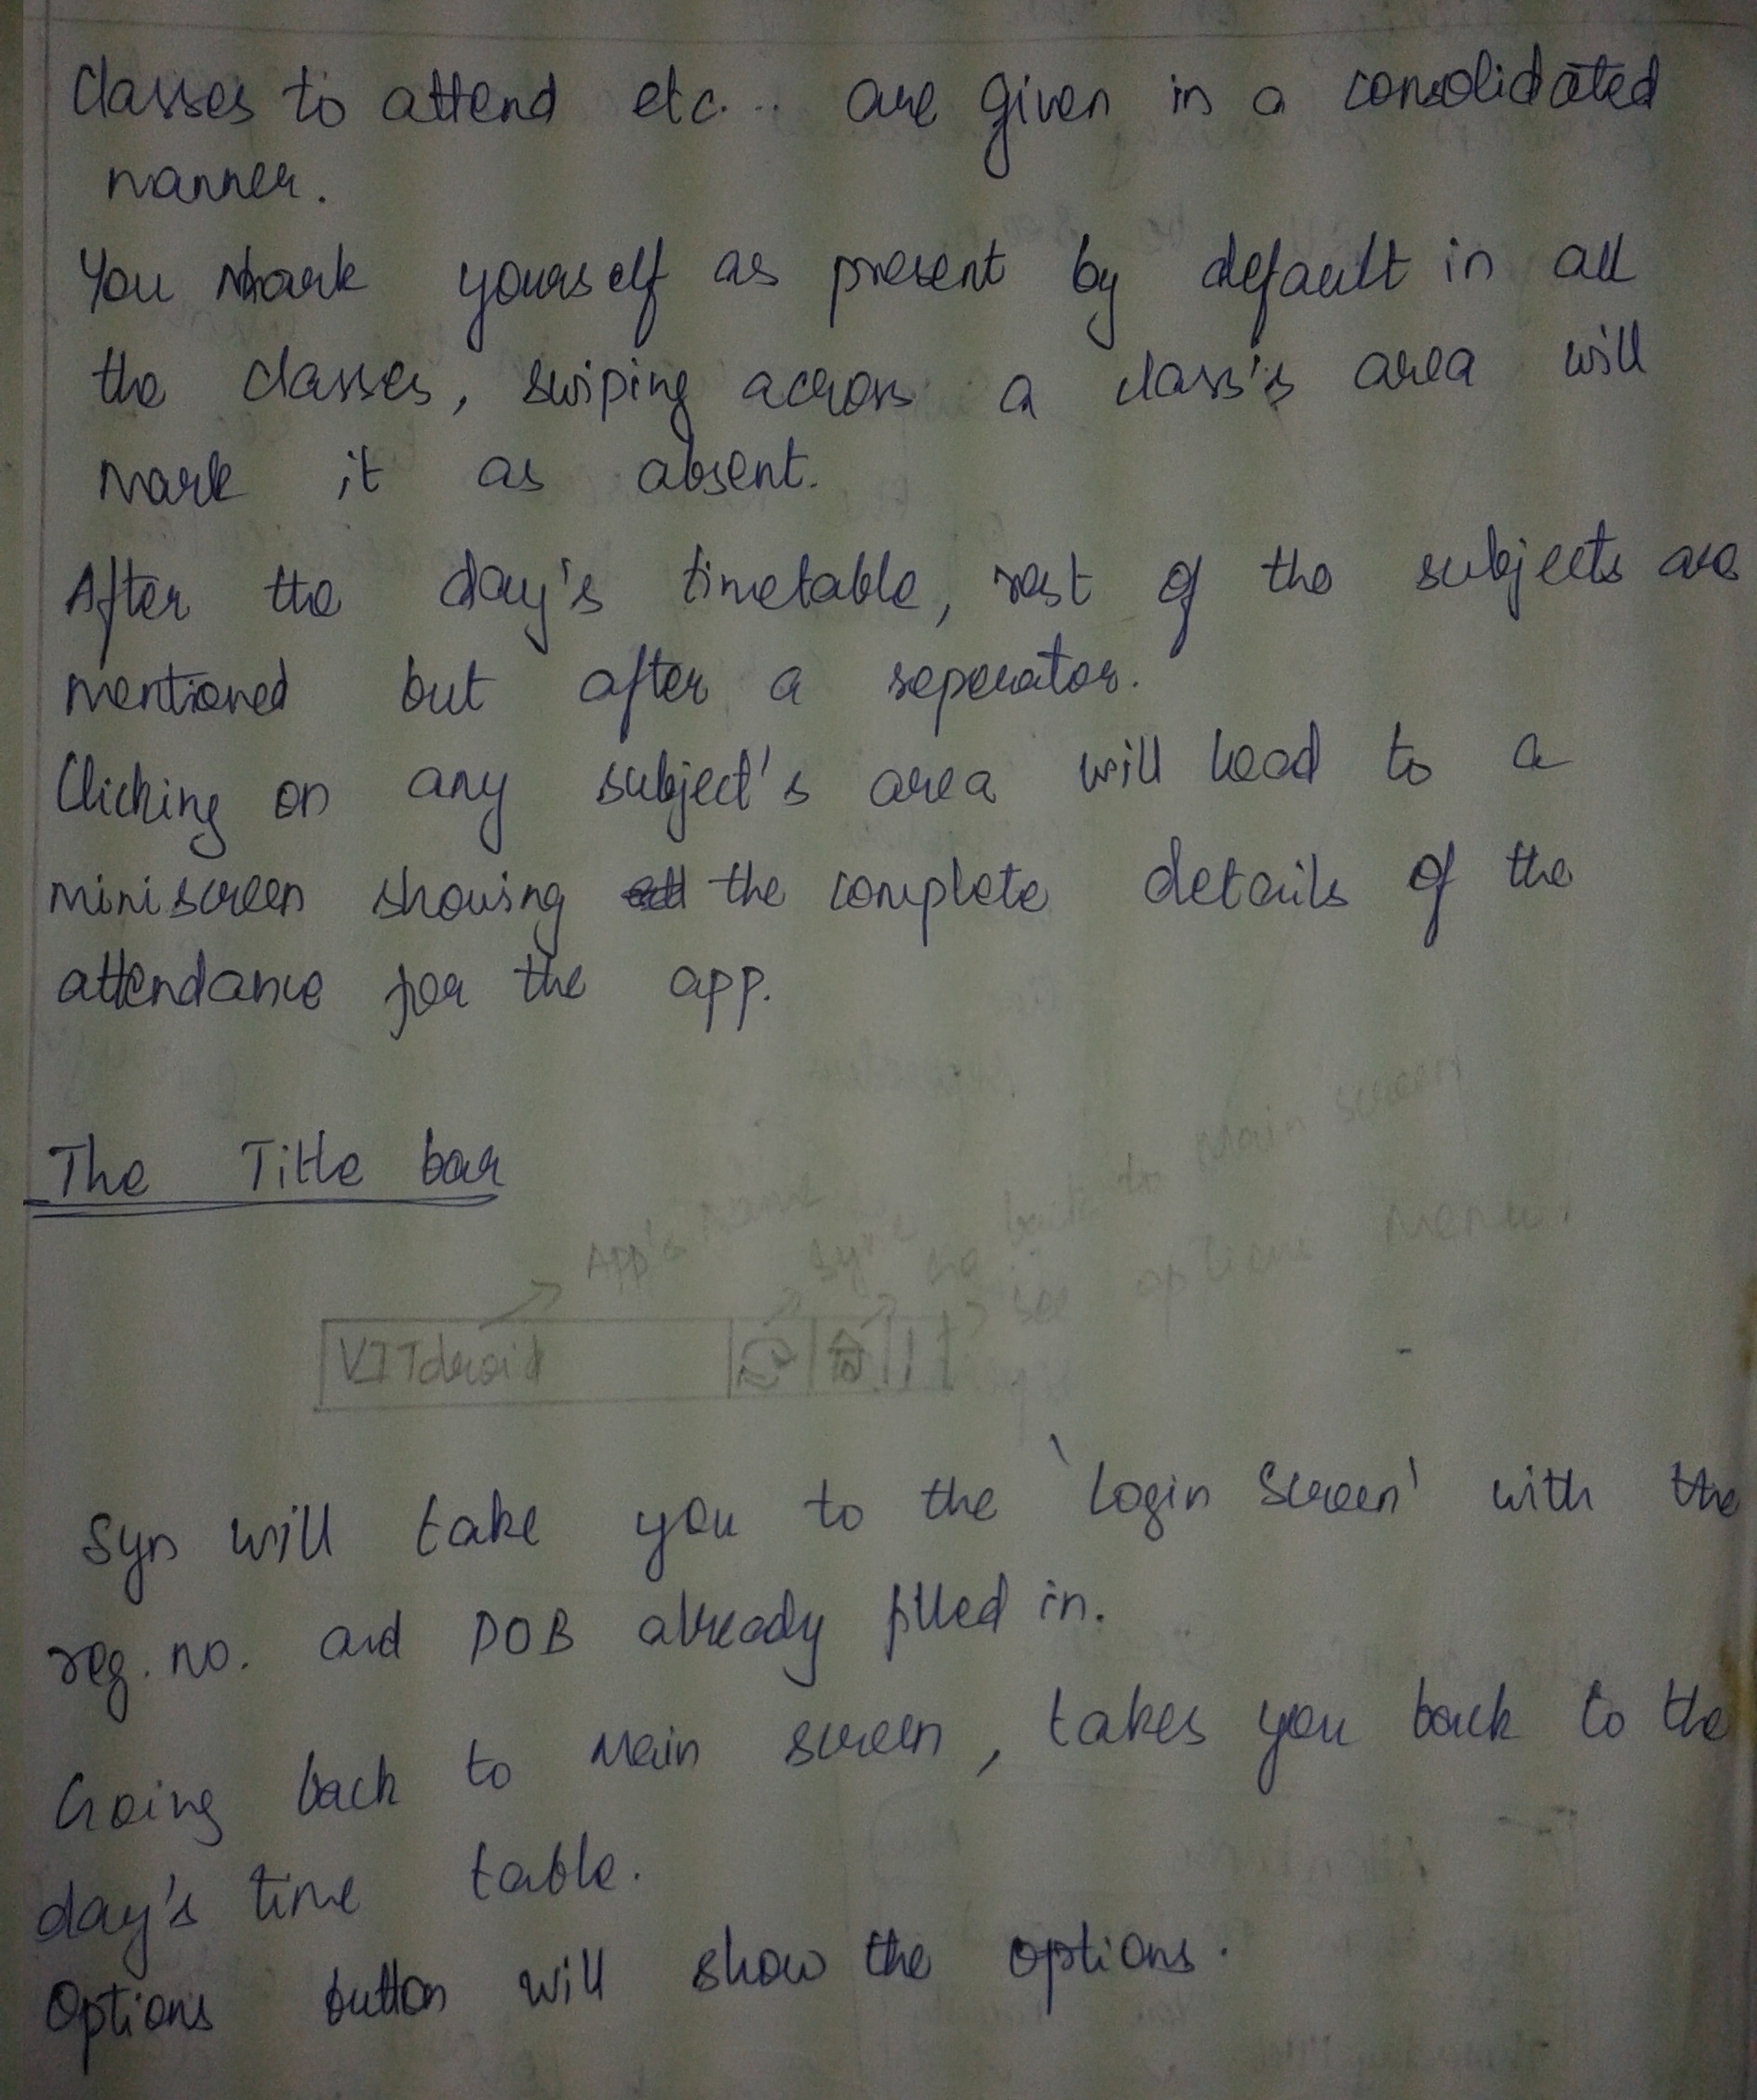 Classes to attend etc... are given in a consolidated
manner.
You mark yourself as present by default in all
the classes, swiping across a class's area will
mark it as absent.
After the day's timetable, rest of the subjects are
mentioned but after a seperator.
Clicking on any subject's area will lead to a
miniscreen showing the complete details of the
attendance for the app.
The Title bar
App's name
Sync
go back to Main screen
see options menu.
VITdroid
Syn will take you to the 'Login Screen' with the
reg. no. and DOB already filled in.
Going back to Main screen, takes you back to the
day's time table.
Options button will show the options.